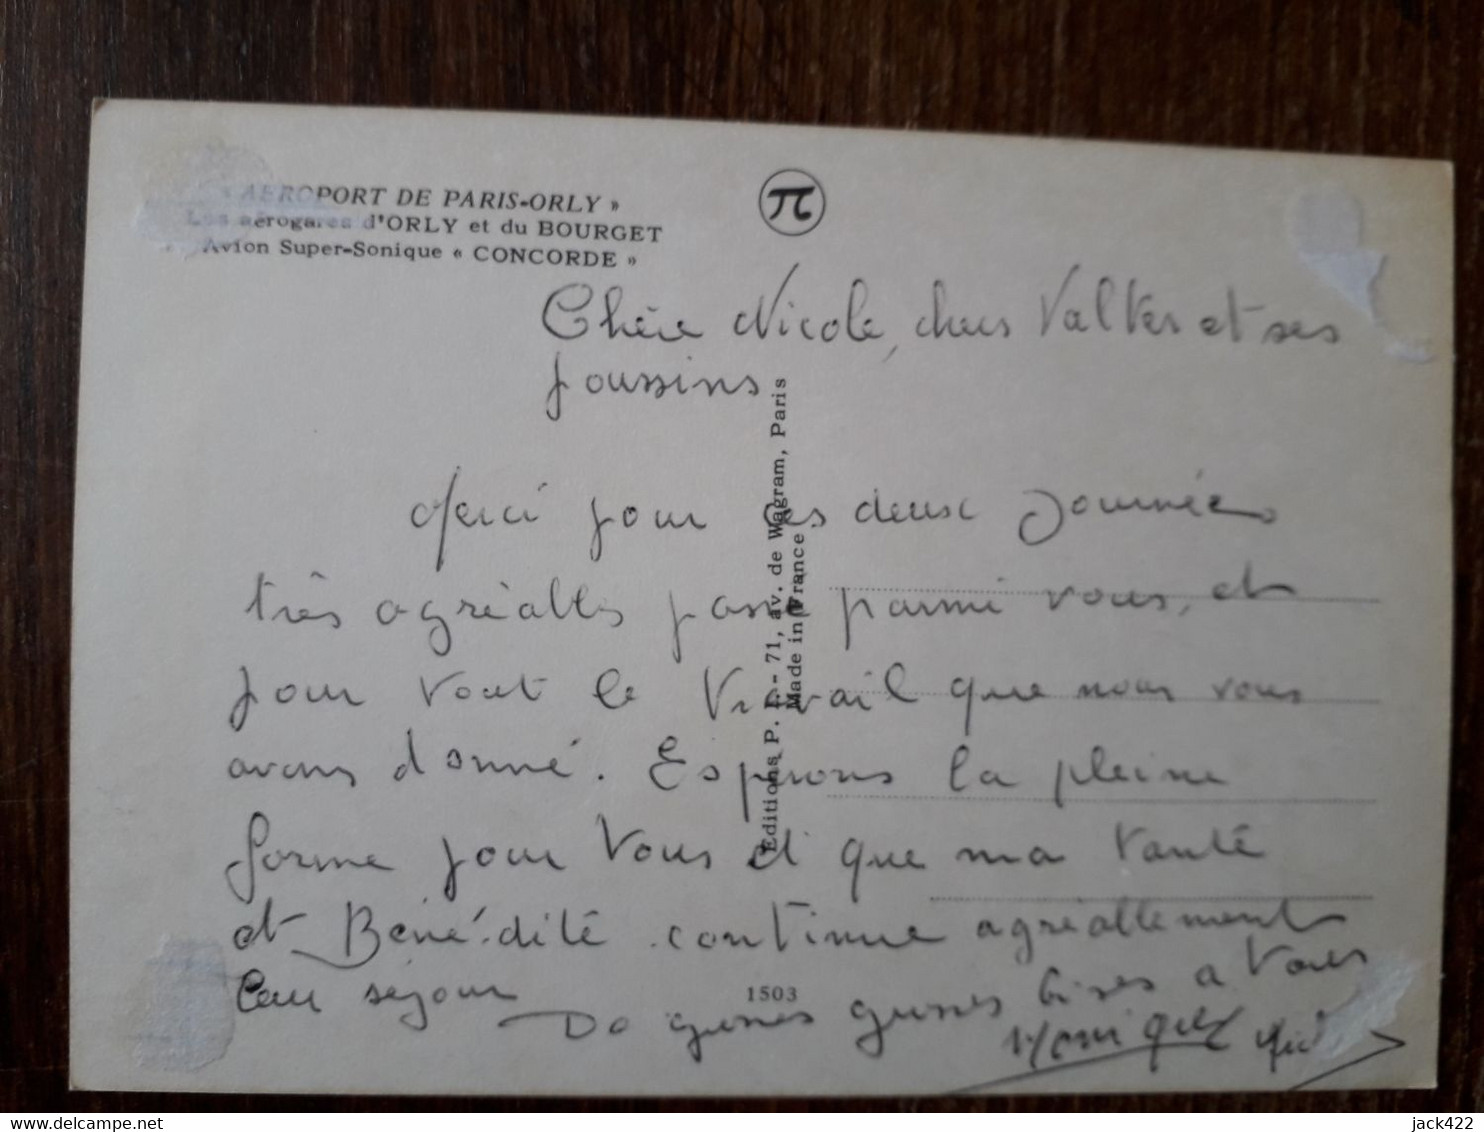 « AEROPORT DE PARIS-ORLY »
Les aérogares d'ORLY et du BOURGET
Avion Super-Sonique « CONCORDE »
π
Chère Nicole, chers Valter et ses
poussins
Merci pour ces deux Journées
très agréables passé parmi vous, et
pour tout le travail que nous vous
avons donné. Espérons la pleine
forme pour tous et que ma tante
et Bénédite continue agréablement
leur séjour
De grosses grosses bises a tous
Monique
Editions P. I. - 71, av. de Wagram, Paris
Made in France
1503
delcampe.net
jack422